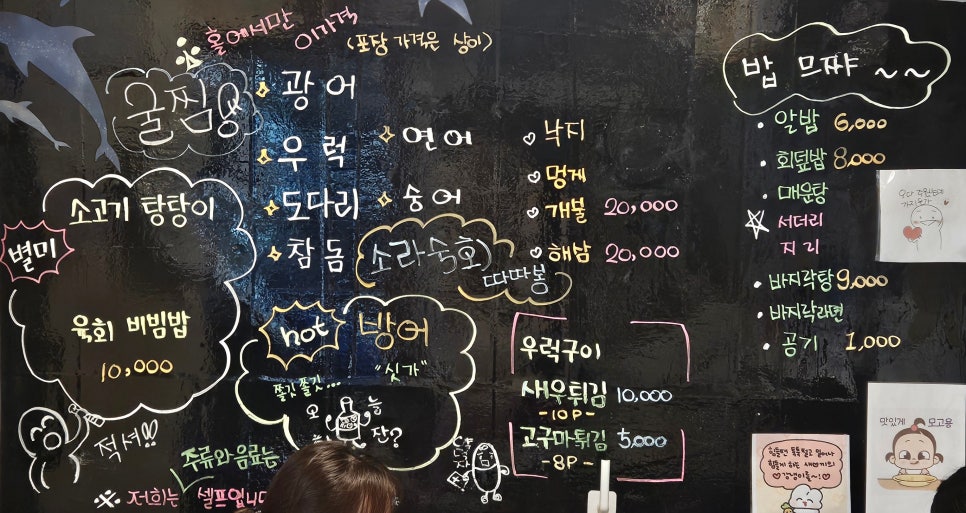 홀에서만
이가격
(포장 가격은 상이)
굴찜
광어
우럭
연어
도다리
숭어
참돔
소라숙회
따따봉
별미
소고기 탕탕이
육회 비빔밥
10,000
적셔!!
주류와 음료는
저희는 셀프입니다
hot
방어
"싯가"
쫄깃쫄깃...
오늘
잔?
낙지
멍게
개불 20,000
해삼 20,000
우럭구이
새우튀김 10,000
-10P-
고구마튀김 5,000
-8P-
밥 므쨔 ~~
알밥 6,000
회덮밥 8,000
매운탕
서더리
지리
바지락탕 9,000
바지락라면
공기 1,000
맛있게 모고용